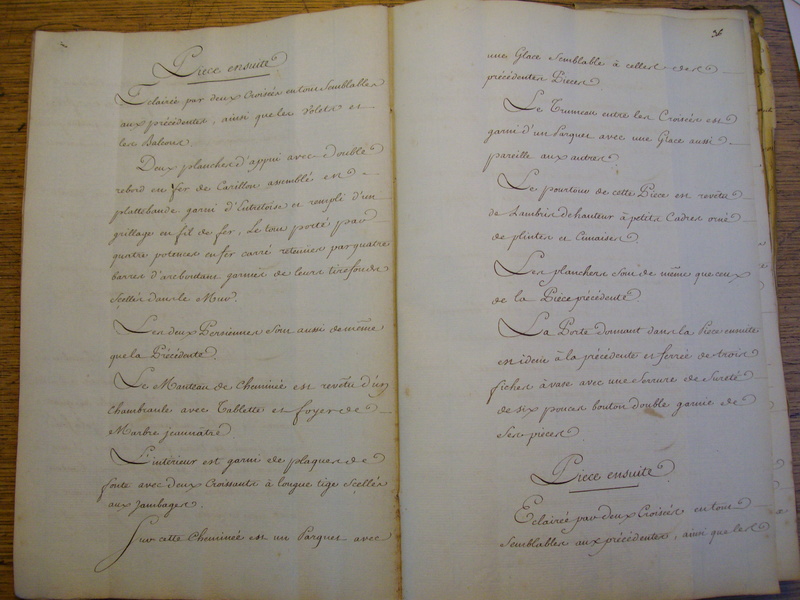 Piece ensuite
Eclairée par deux Croisées en tout Semblables
aux précédentes, ainsi que les Volets et
les Balcons.
Deux planches d'appui avec double
rebord en fer de Carillon assemblé en
plattebande garni d'Entretoise et rempli d'un
grillage en fil de fer, Le tout porté par
quatre potences en fer carré retenues par quatre
barres d'arcboutant garnies de leurs tirefonds
Scellés dans le Mur.
Les deux Persiennes sont aussi de même
que la Précédente.
Le Manteau de Cheminée est revêtu d'un
Chambranle avec Tablette et foyer de
Marbre jeaunâtre
L'intérieur est garni de plaques de
fonte avec deux Croissants à longue tige Scellés
aux Jambages.
Sur cette Cheminée est un Parquet avec
36
une Glace Semblable à celles des
précédentes Pieces
Le Trumeau entre les Croisées est
garni d'un Parquet avec une Glace aussi
pareille aux autres.
Le pourtour de cette Piece est revêtu
de Lambris de hauteur à petits Cadres orné
de plintes et Cimaises.
Les planchers sont de même que ceux
de la Piece précédente.
La Porte donnant dans la Piece ensuite
est idem à la précédente et ferrée de trois
fiches à vase avec une Serrure de Sureté
de six pouces bouton double garnie de
Ses pieces
Piece ensuite
Eclairée par deux Croisées en tout
Semblables aux précédentes, ainsi que les